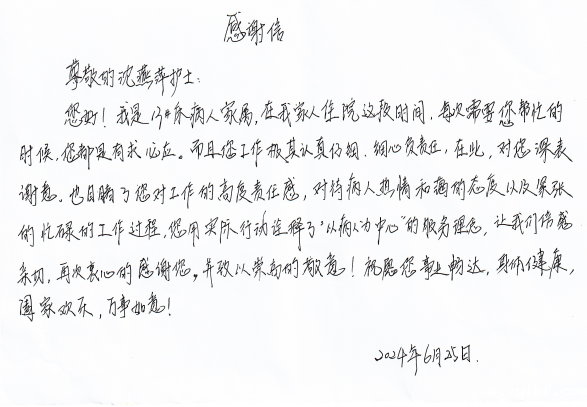 感谢信
尊敬的沈燕萍护士:
您好!我是13#床病人家属,在我家人住院这段时间,每次需要您帮忙的
时候,您都是有求必应。而且您工作极其认真仔细、细心负责任,在此,对您深表
谢意。也目睹了您对工作的高度责任感,对待病人热情和蔼的态度以及紧张
的忙碌的工作过程,您用实际行动诠释了“以病人为中心”的服务理念,让我们倍感
亲切,再次衷心的感谢您。并致以崇高的敬意!祝愿您事业畅达,身体健康,
阖家欢乐,万事如意!
2024年6月25日.